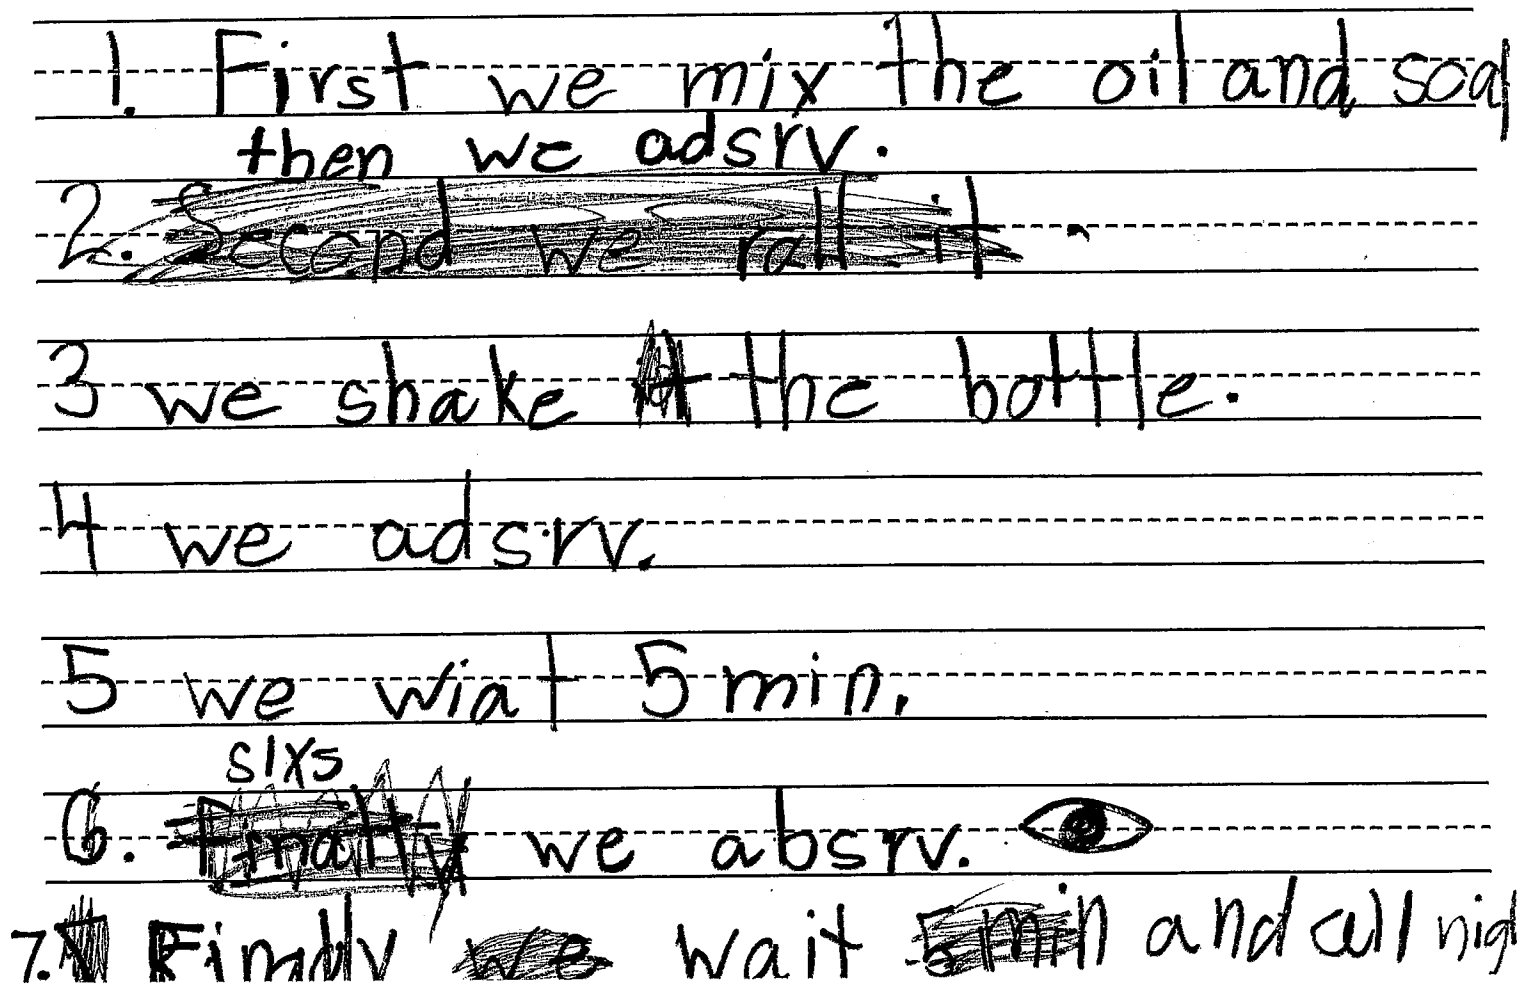 1. First we mix the oil and soap
then we adsrv.
2. Second we rall it.
3 we shake the bottle.
4 we adsrv.
5 we wiat 5 min.
sixs
6. Finally we absrv.
7. Finally we wait 5 min and all nigh